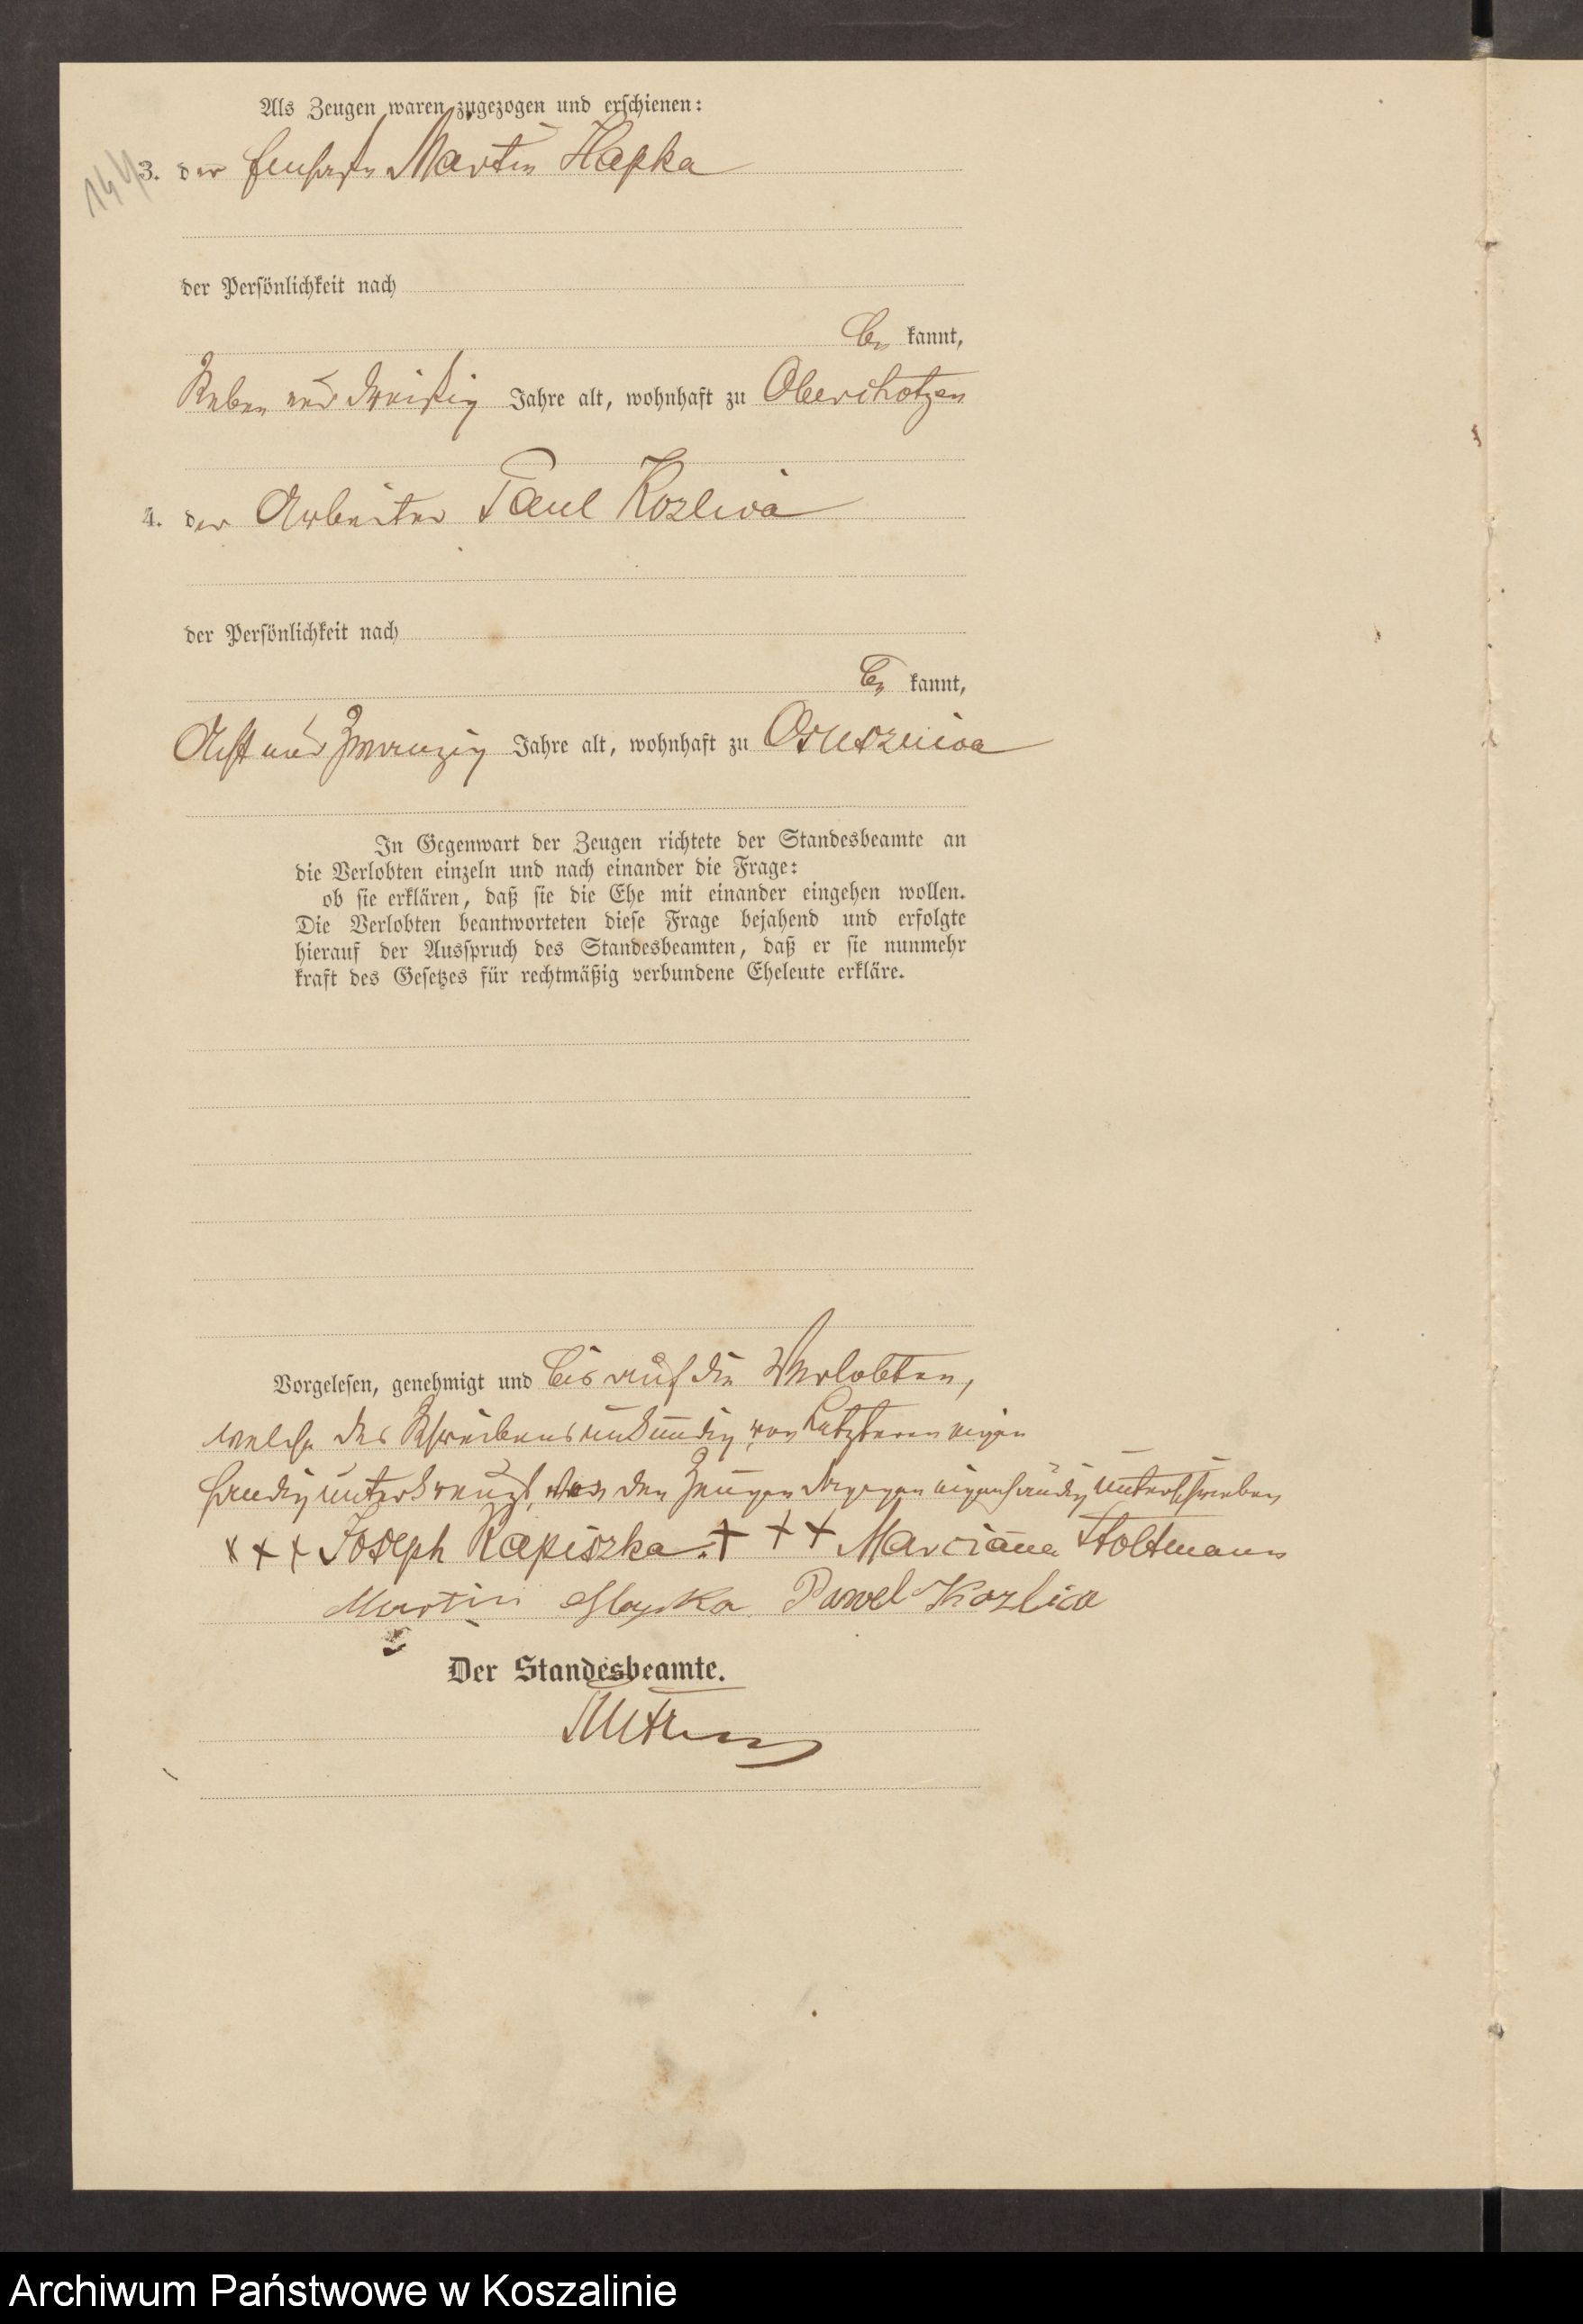 Als Zeugen waren zugezogen und erschienen:
144
3. der Martin Hapka
der Persönlichkeit nach
be kannt,
Sieben und dreißig Jahre alt, wohnhaft zu Oberchotzen
4. der Arbeiter Paul Kozlwa
der Persönlichkeit nach
be kannt,
Acht und zwanzig Jahre alt, wohnhaft zu Osusznica
In Gegenwart der Zeugen richtete der Standesbeamte an
die Verlobten einzeln und nach einander die Frage:
ob sie erklären, daß sie die Ehe mit einander eingehen wollen.
Die Verlobten beantworteten diese Frage bejahend und erfolgte
hierauf der Ausspruch des Standesbeamten, daß er sie nunmehr
kraft des Gesetzes für rechtmäßig verbundene Eheleute erkläre.
Vorgelesen, genehmigt und bis auf die Verlobten,
welche des Schreibens unkundig, von Letzteren eigen
händig unterkreuzt, von den Zeugen dagegen eigenhändig unterschrieben
+++ Joseph Kapiszka. +++ Marciana Stoltmann
Martin Hapka. Pawel Kozlica
Der Standesbeamte.
Archiwum Państwowe w Koszalinie